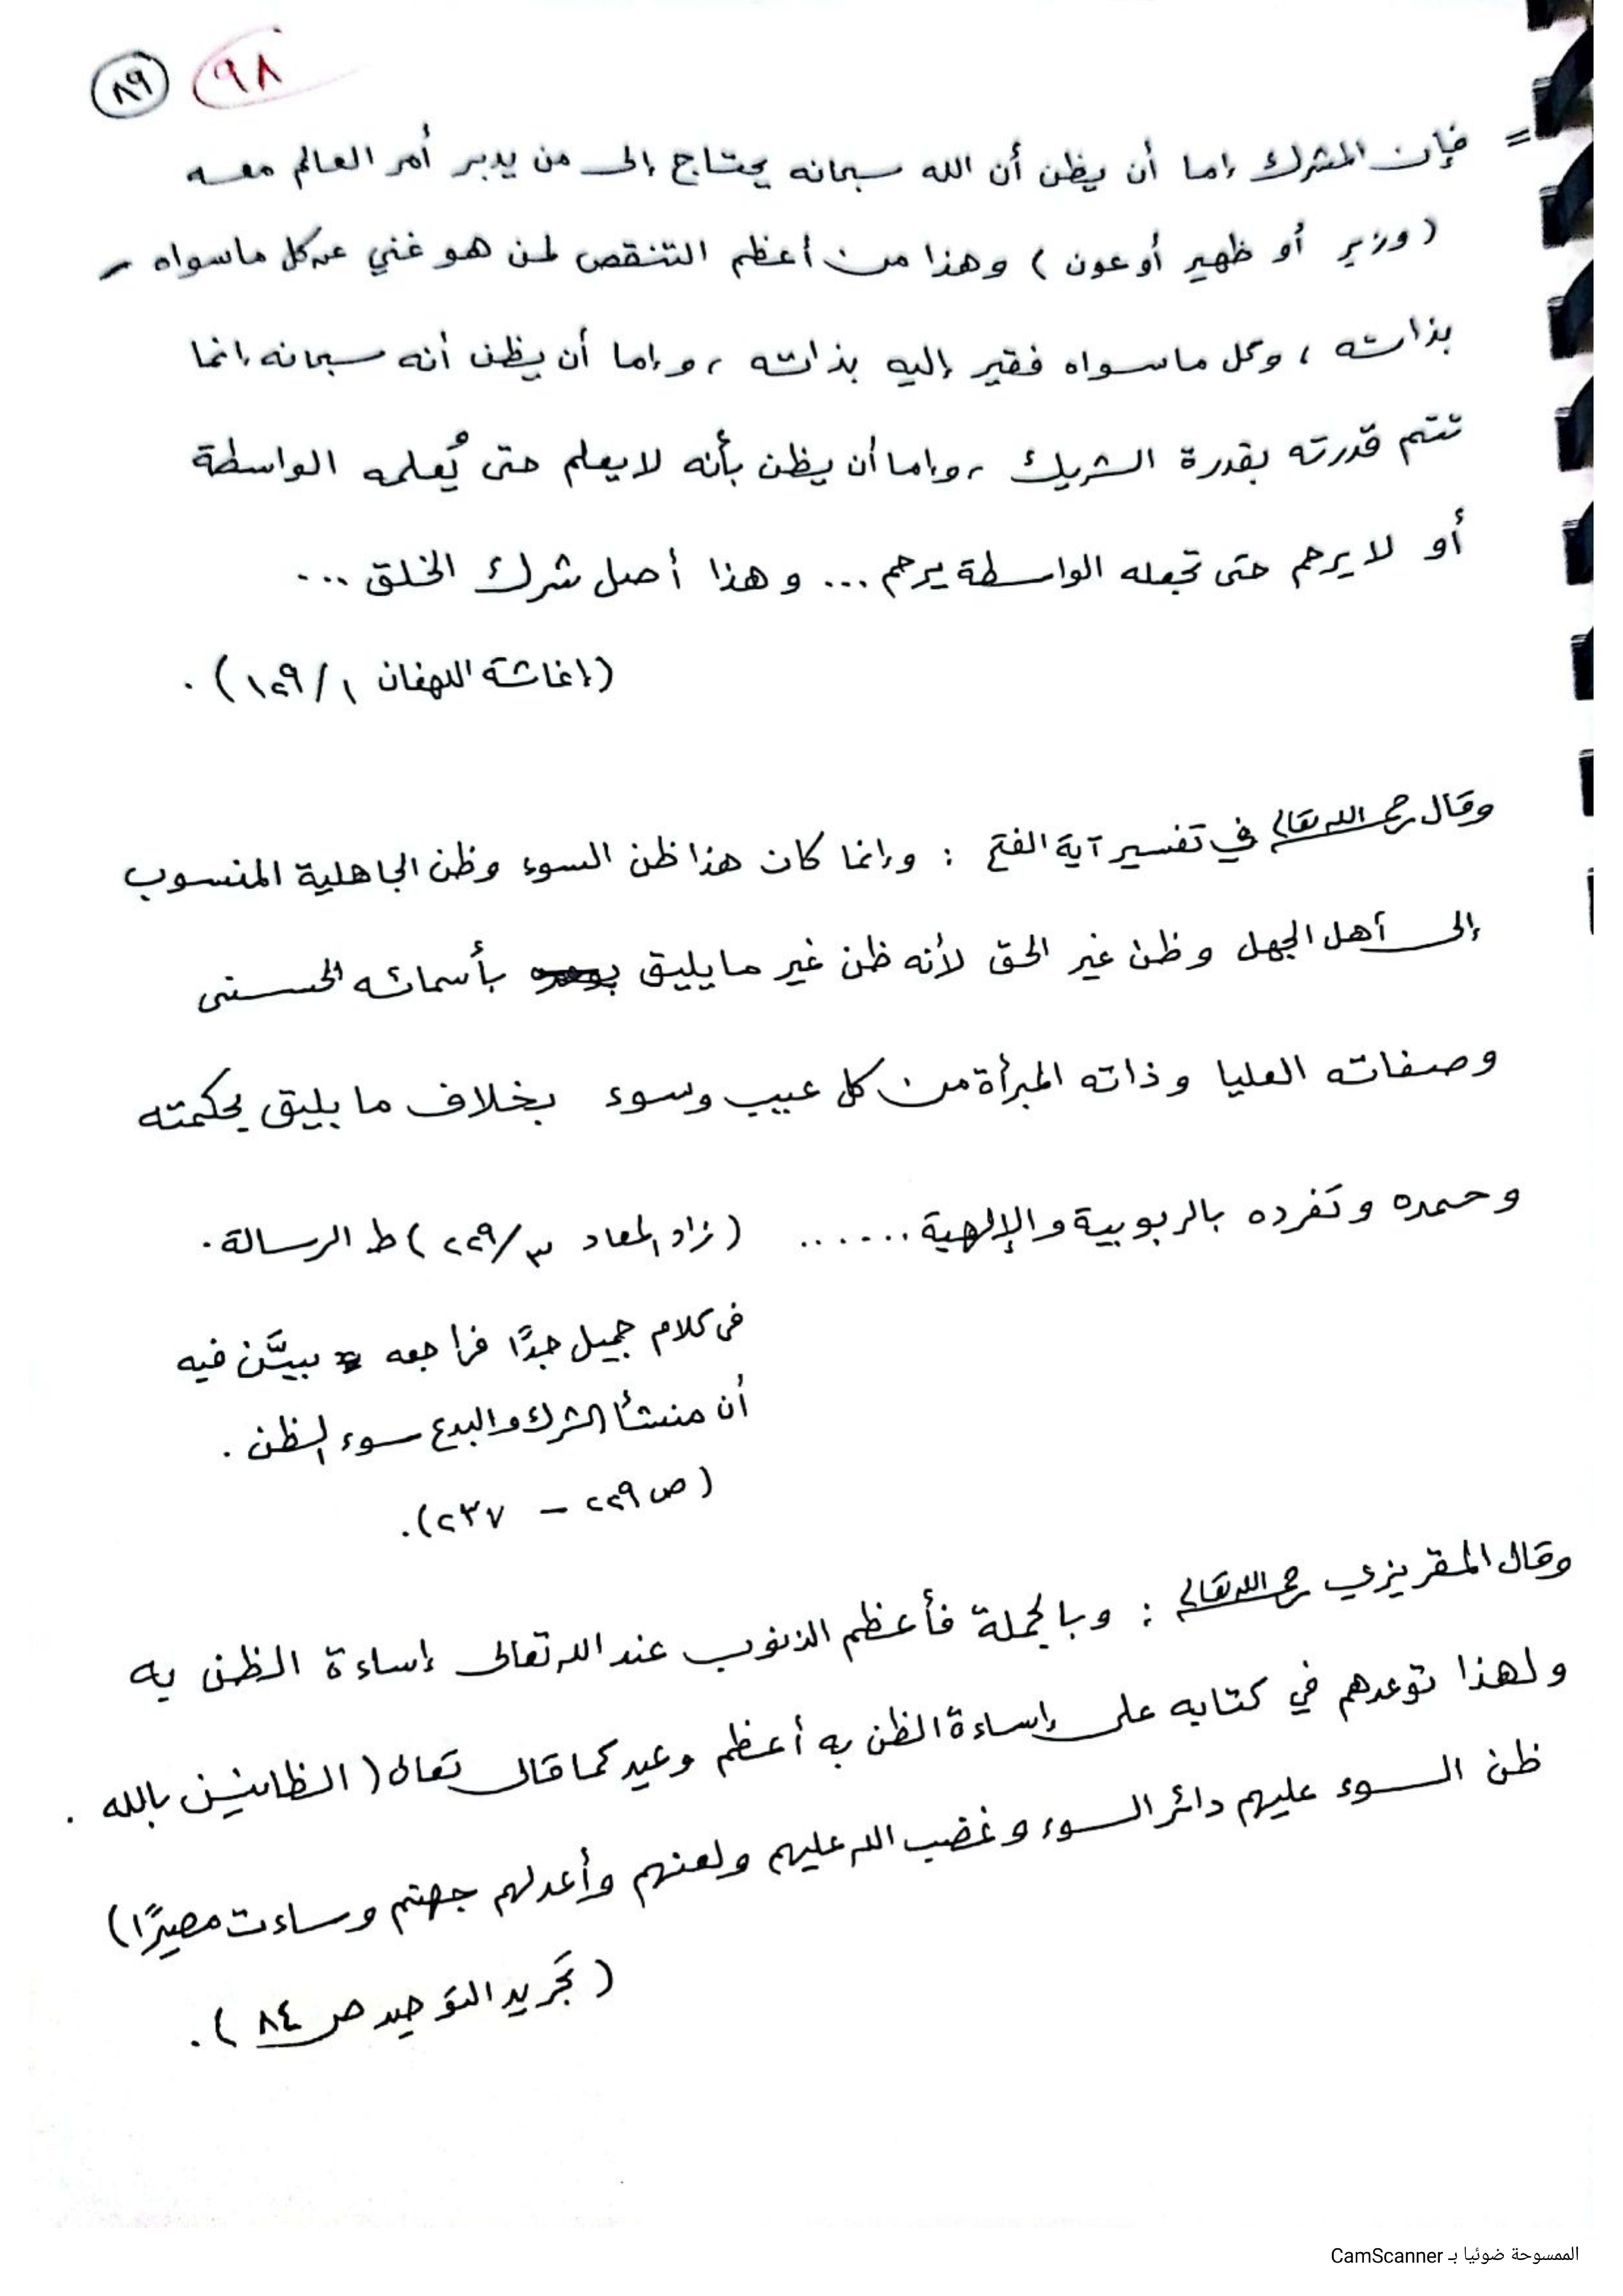 ٩٨ ٨٩
= فإن المشرك إما أن يظن أن الله سبحانه يحتاج إلى من يدبر أمر العالم معه
( وزير أو ظهير أو عون ) وهذا من أعظم التنقص لمن هو غني عن كل ما سواه
بذاته ، وكل ما سواه فقير إليه بذاته ، وإما أن يظن أنه سبحانه إنما
تتم قدرته بقدرة الشريك ، وإما أن يظن بأنه لا يعلم حتى يُعلمه الواسطة
أو لا يرحم حتى تجعله الواسطة يرحم ... وهذا أصل شرك الخلق ...
(إغاثة اللهفان ١/١٢٩) .
وقال رحمه الله تعالى في تفسير آية الفتح : وإنما كان هذا ظن السوء وظن الجاهلية المنسوب
إلى أهل الجهل وظن غير الحق لأنه ظن غير ما يليق بأسمائه الحسنى
وصفاته العليا وذاته المبرأة من كل عيب وسوء بخلاف ما يليق بحكمته
وحمده وتفرده بالربوبية والإلهية ...... ( زاد المعاد ٣/٢٢٩ ) ط الرسالة .
في كلام جميل جدًا فراجعه يبيَّن فيه
أن منشأ الشرك والبدع سوء الظن .
( ص ٢٢٩ – ٢٣٧ ).
وقال المقريزي رحمه الله تعالى : وبالجملة فأعظم الذنوب عند الله تعالى إساءة الظن به
ولهذا توعدهم في كتابه على إساءة الظن به أعظم وعيد كما قال تعالى ( الظانين بالله .
ظن السوء عليهم دائر السوء وغضب الله عليهم ولعنهم وأعد لهم جهنم وساءت مصيرًا )
( تجَريد التوحيد ص ٨٤ ).
الممسوحة ضوئيا بـ CamScanner